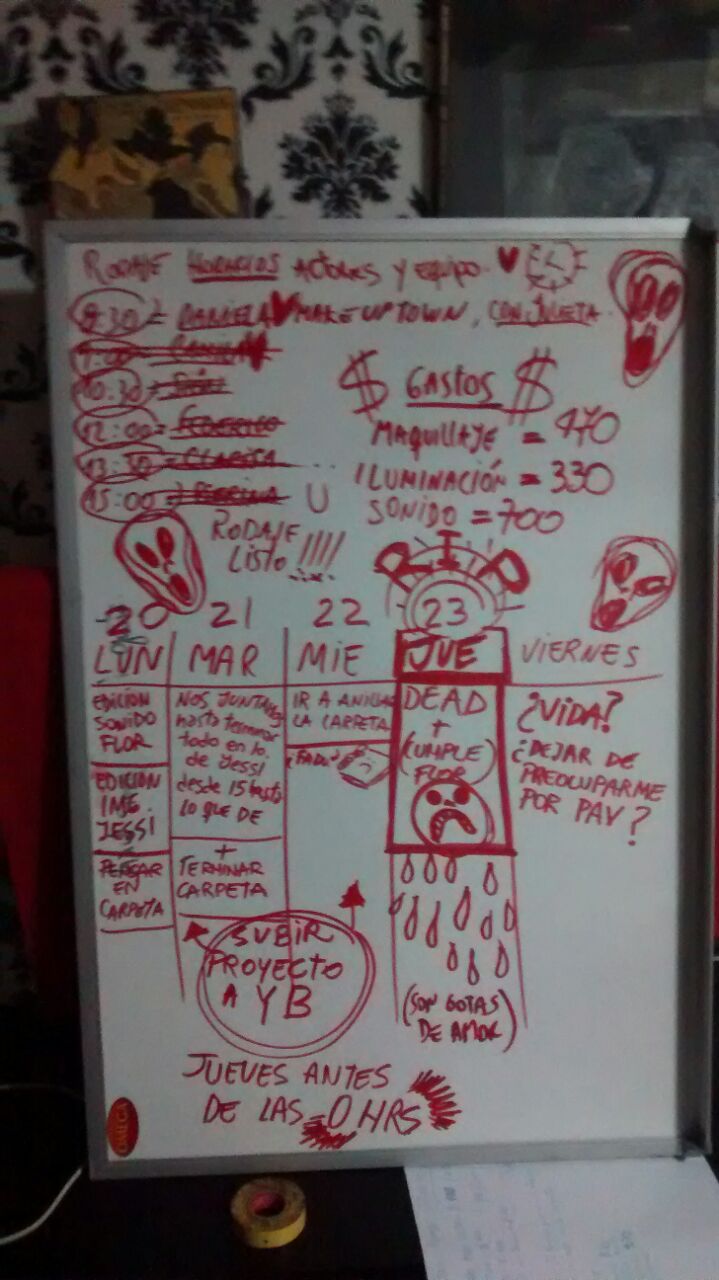 RODAJE HORARIOS ACTORES Y EQUIPO.
8:30 = DANIELA MAKE UP TOWN, CON JULIETA.
9:00 = CAMILA
10:30 =
12:00 = FEDERICO
13:30 = CLARITA
15:00 =
$ GASTOS $
MAQUILLAJE = 470
ILUMINACIÓN = 330
SONIDO = 700
RODAJE
LISTO !!!!
R I P
20 21 22 23
LUN MAR MIE JUE VIERNES
EDICION
SONIDO
FLOR
EDICION
IMG.
JESSI
PENSAR
EN
CARPETA
NOS JUNTAMOS
hasta terminar
todo en lo
de Yessi
desde 15 hasta
LO QUE DE
+
TERMINAR
CARPETA
IR A ANILLAR
LA CARPETA
(FADU)
DEAD
+
(CUMPLE
FLOR)
¿VIDA?
¿DEJAR DE
PREOCUPARME
POR PAV?
SUBIR
PROYECTO
A YB
(SON GOTAS
DE AMOR)
JUEVES ANTES
DE LAS 0 HRS
OMEGA